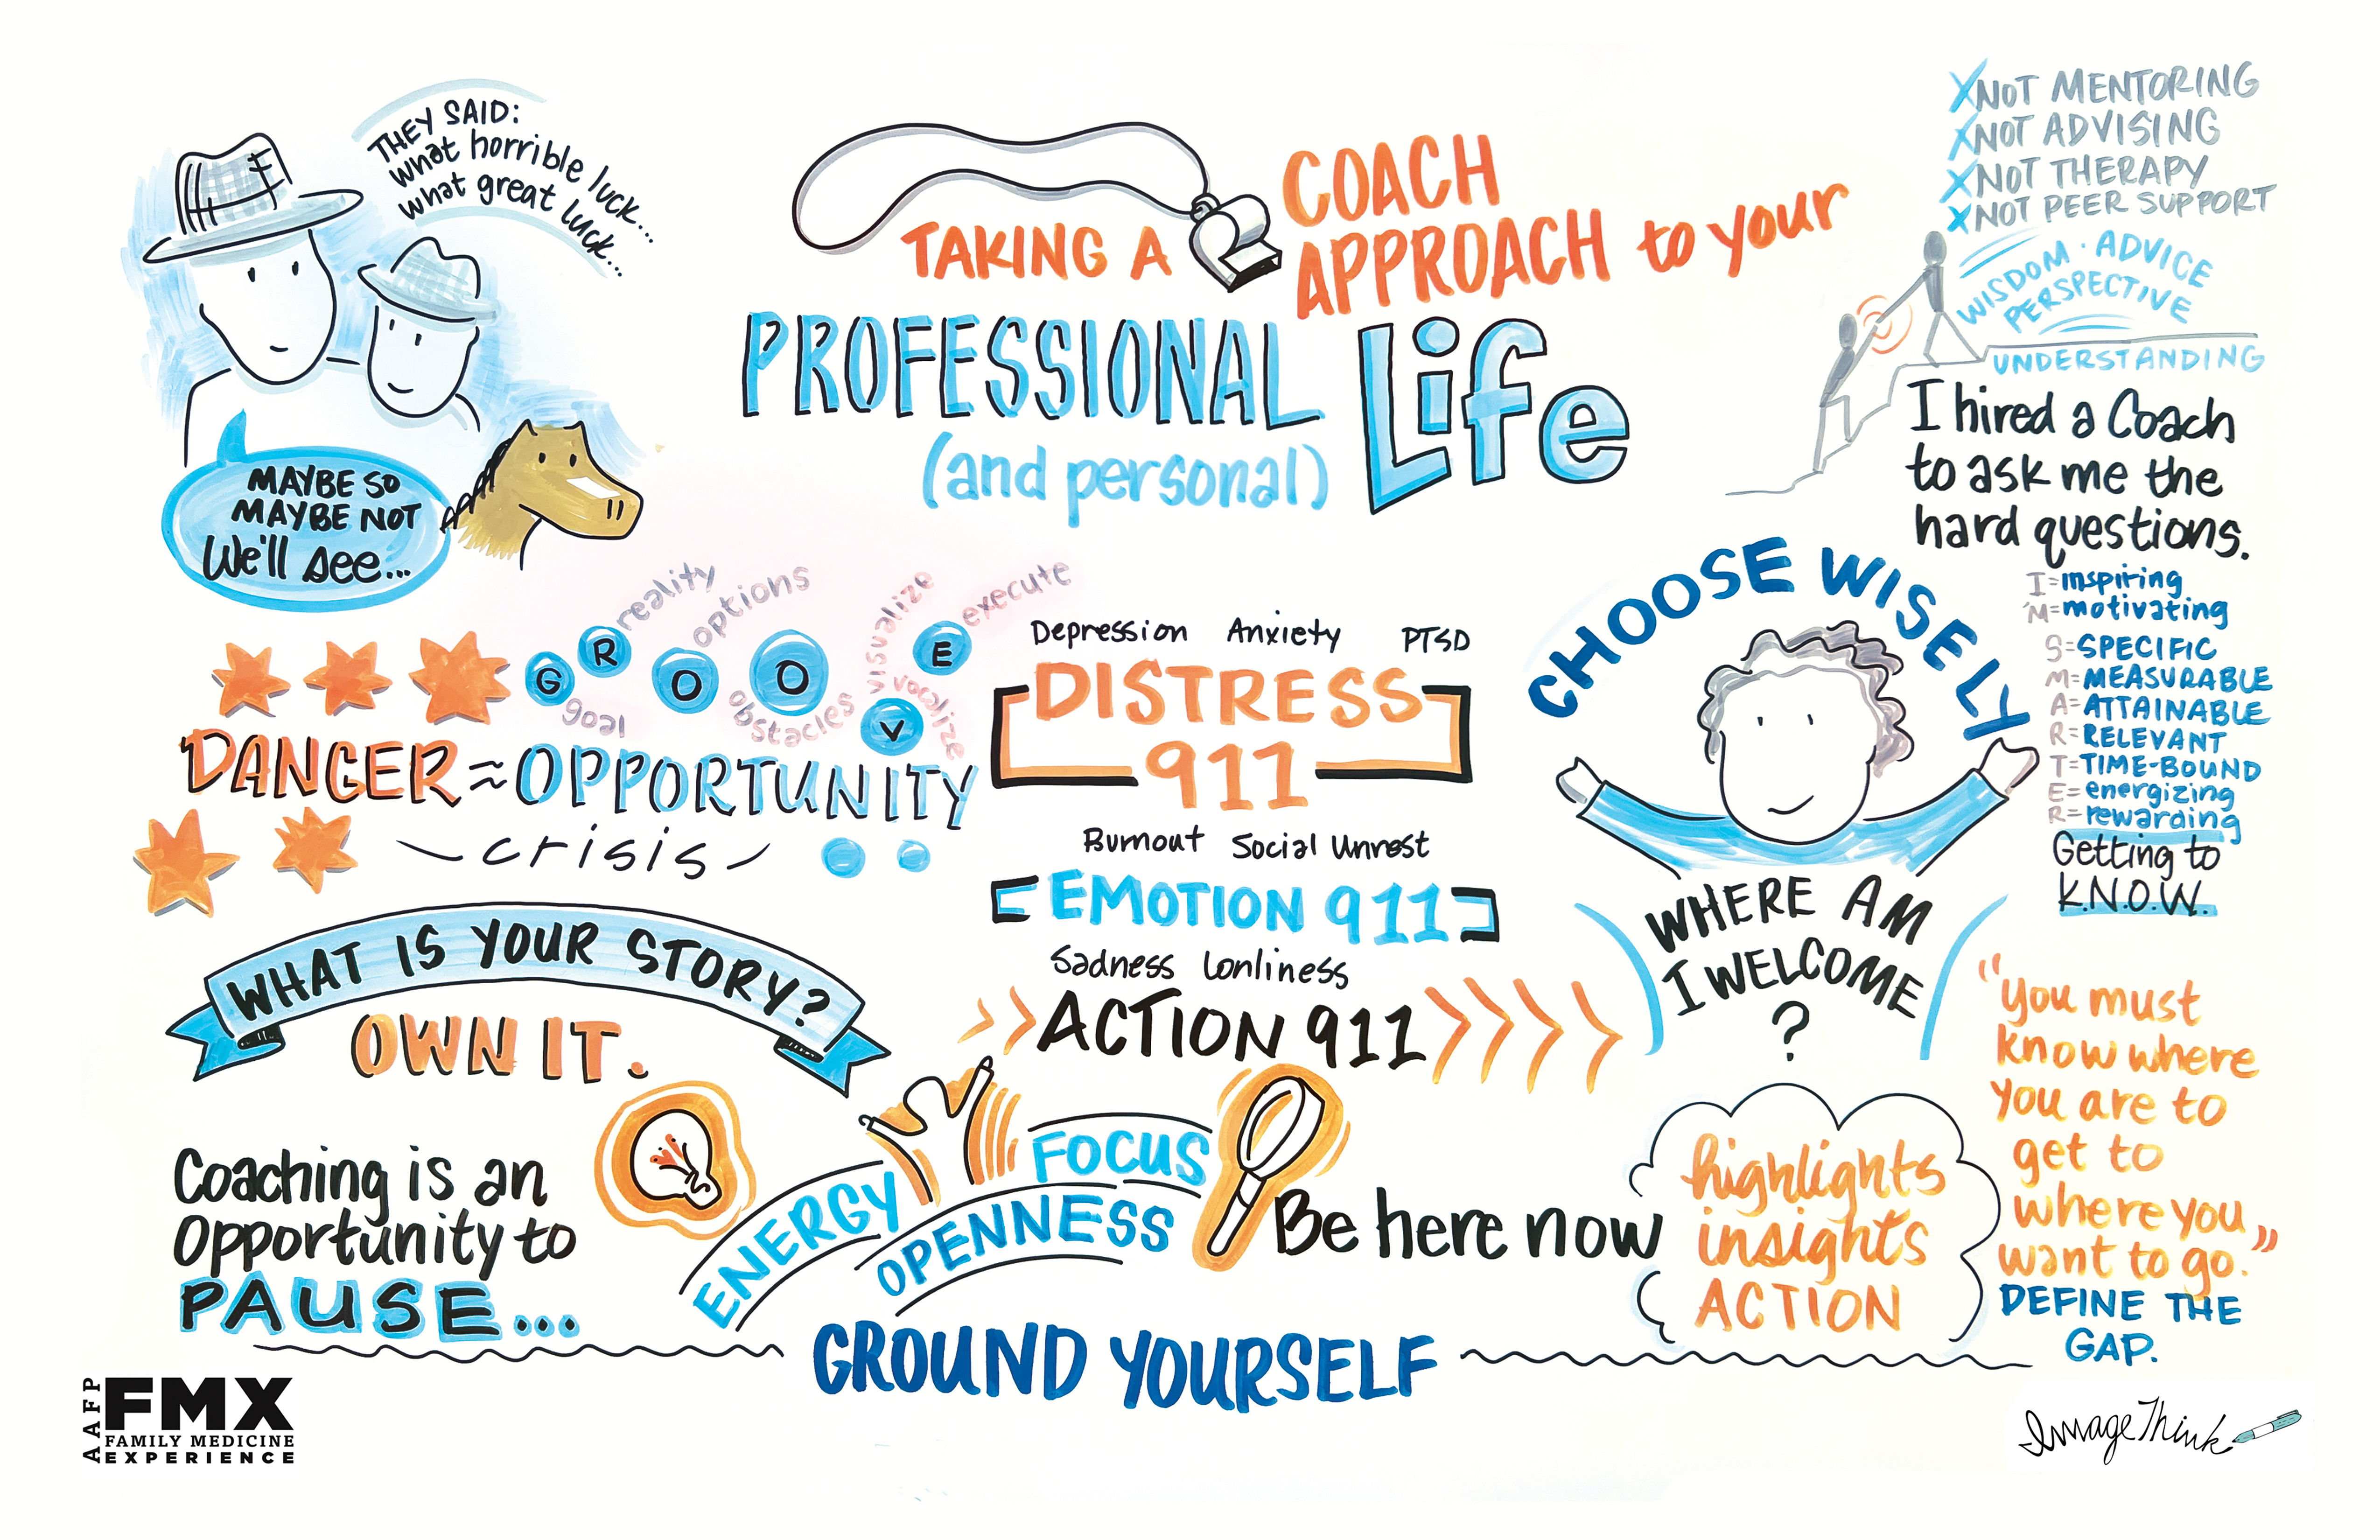 THEY SAID:
what horrible luck...
what great luck...
MAYBE SO
MAYBE NOT
We'll see...
TAKING A
COACH
APPROACH to your
PROFESSIONAL Life
(and personal)
X NOT MENTORING
X NOT ADVISING
X NOT THERAPY
X NOT PEER SUPPORT
WISDOM · ADVICE
PERSPECTIVE
UNDERSTANDING
I hired a Coach
to ask me the
hard questions.
I=inspiring
M=motivating
S=SPECIFIC
M=MEASURABLE
A=ATTAINABLE
R=RELEVANT
T=TIME-BOUND
E=energizing
R=rewarding
Getting to
K.N.O.W.
G
goal
R
reality
O
options
O
obstacles
V
visualize
vocalize
E
execute
DANGER≈OPPORTUNITY
crisis
Depression Anxiety PTSD
DISTRESS
911
Burnout Social Unrest
EMOTION 911
Sadness Lonliness
ACTION 911
CHOOSE WISELY
WHERE AM
I WELCOME
?
WHAT IS YOUR STORY?
OWN IT.
Coaching is an
Opportunity to
PAUSE...
ENERGY
FOCUS
OPENNESS
Be here now
highlights
insights
ACTION
"You must
know where
you are to
get to
where you
want to go."
DEFINE THE
GAP.
GROUND YOURSELF
AAFP
FMX
FAMILY MEDICINE
EXPERIENCE
ImageThink